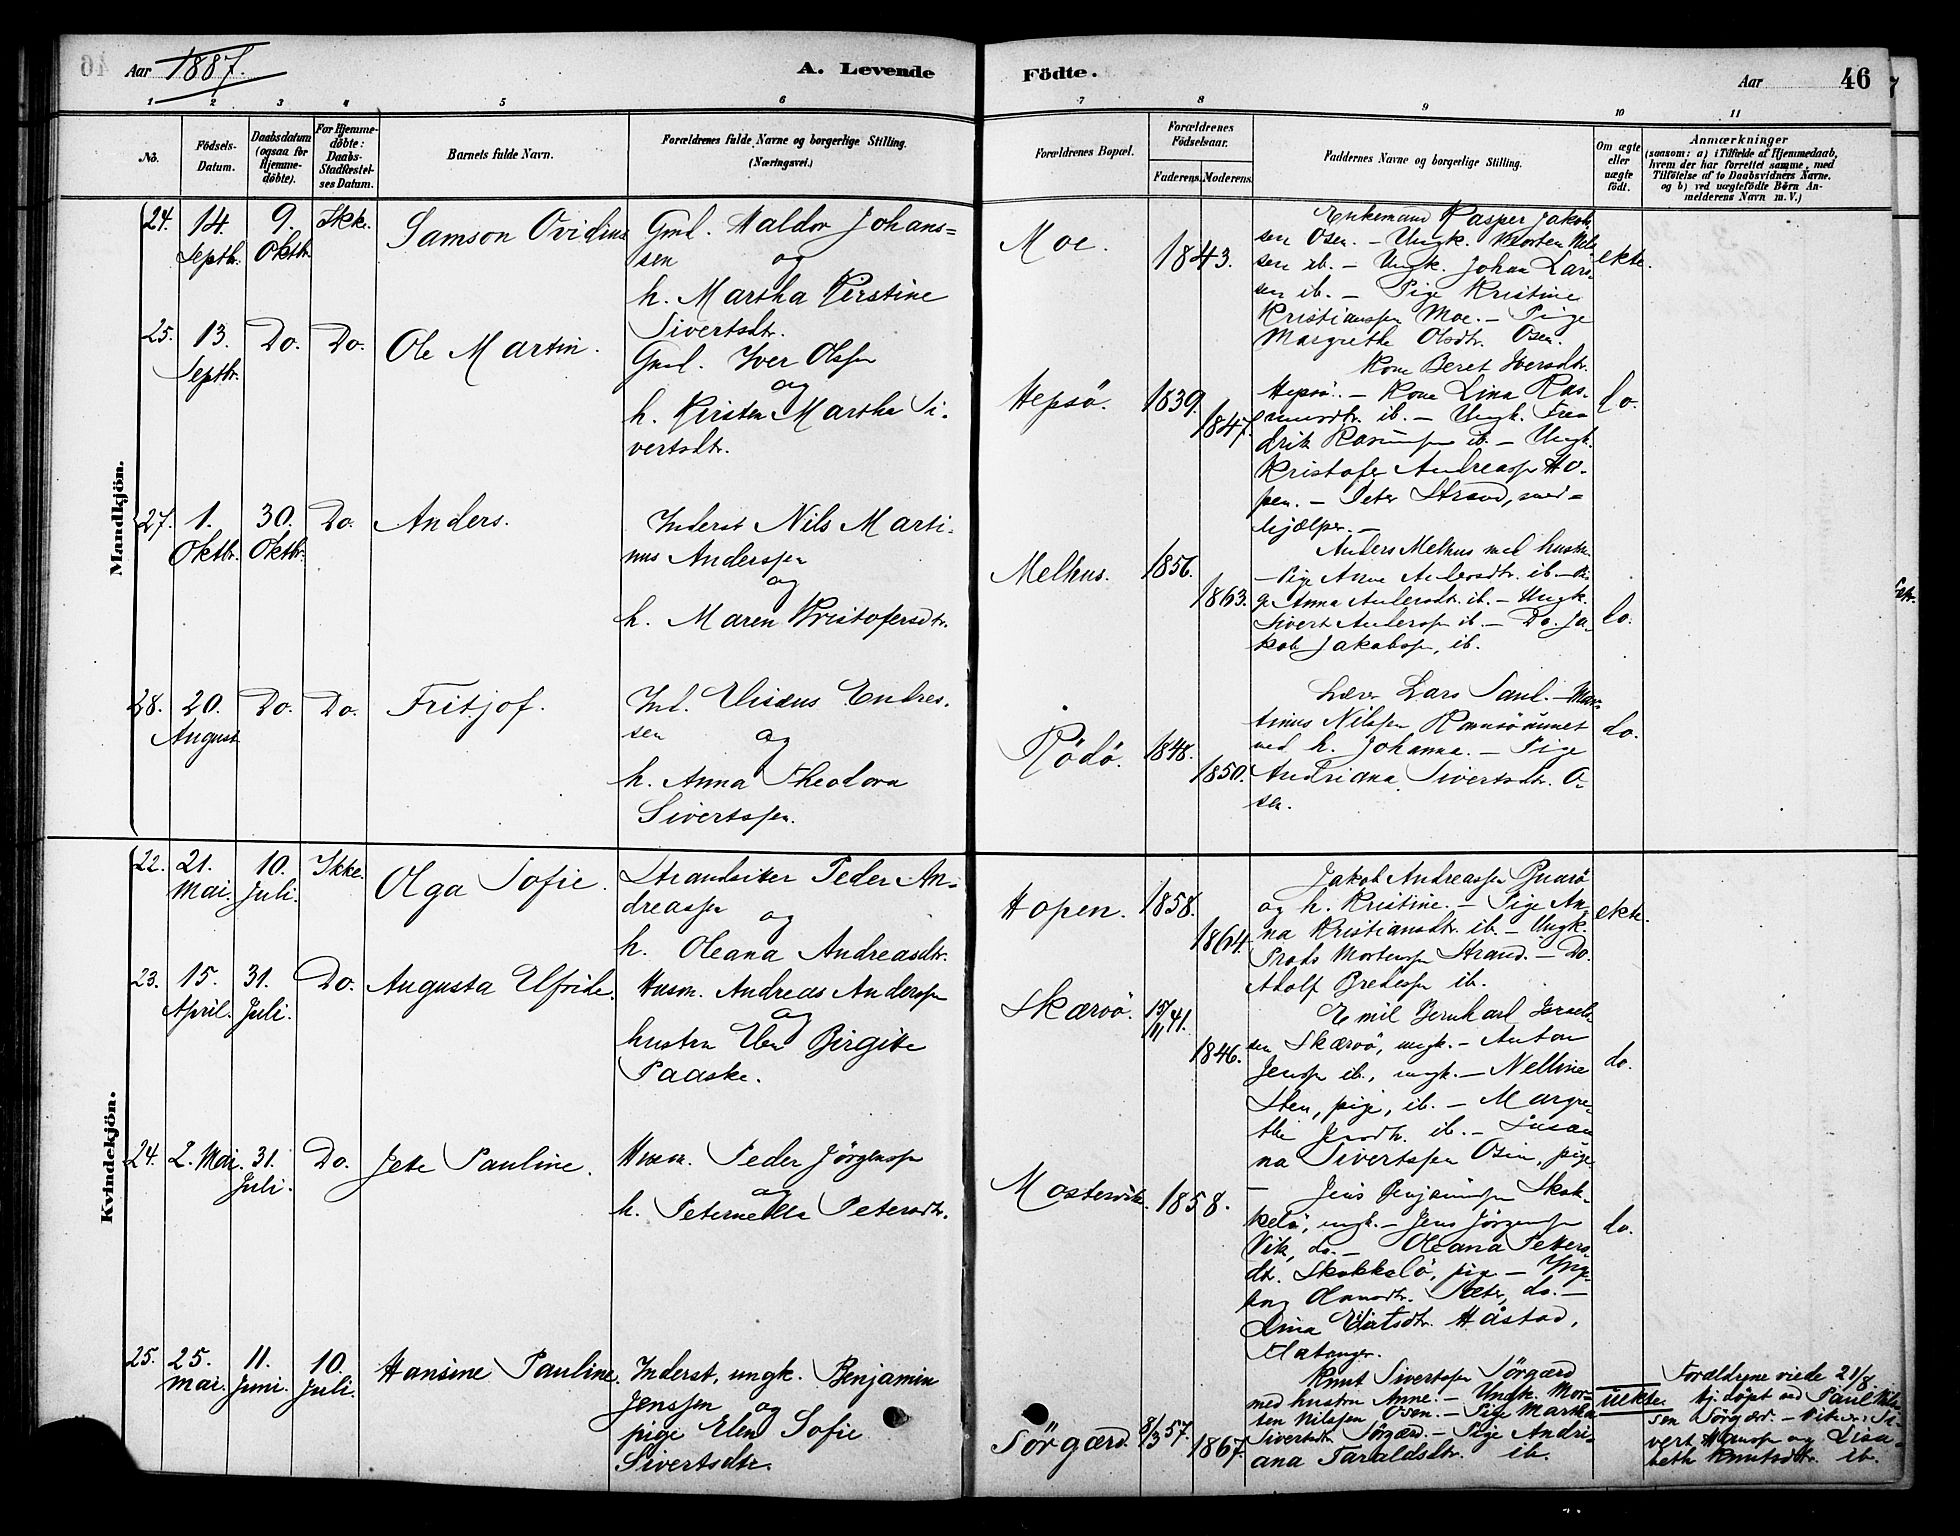 Aar 1887.
A. Levende Födte.
Aar
46
1 2 3 4 5 6 7 8 9 10 11
No.
Födsels-Datum.
Daabsdatum (ogsaa for Hjemme-döbte).
For Hjemme-döbte: Daabs-Stadfæstel-ses Datum.
Barnets fulde Navn.
Forældrenes fulde Navne og borgerlige Stilling.
(Næringsvei.)
Forældrenes Bopæl.
Forældrenes Födselsaar.
Faderens. Moderens.
Faddernes Navne og borgerlige Stilling.
Om ægte eller uægte födt.
Anmærkninger
(saasom: a) i Tilfælde af Hjemmedaab,
hvem der har forrettet samme, med
Tilföielse af to Daabsvidners Navne.
og b) ved uægtefödte Börn An-
melderens Navn m. V.)
Mandkjön.
24. 14. Septbr. 9. Oktbr. Ikke. Samson Ovidius
Gml. Haldor Johans=
sen og
h. Martha Kirstine
Sivertsdtr.
Moe. 1843.
Enkemand Kasper Jakob-
sen Osen. - Ungk. Morten Nil-
sen ib. - Ungk. Johan Lars-
sen ib. - Pige Kristine
Kristianssen Moe. - Pige
Margrethe Olsdtr. Osen.
ekte.
25. 13. Septbr. Do. Do. Ole Martin.
Gml. Iver Olssen
og
h. Kirsten Martha Si-
vertsdtr.
Hepsö. 1839. 1847.
Kone Beret Iversdtr.
Hepsö. - Kone Lina Ras-
musdtr. ib. - Ungk. Fre-
drik Rasmussen ib. - Ungk.
Kristofer Andreassen Ho-
pen. - Peter Strand, smed=
hjælper. -
do.
27. 1. Oktbr. 30. Oktbr. Do. Anders.
Inderst Nils Marti-
nus Anderssen
og
h. Maren Kristofersdtr.
Melhus. 1856. 1863.
Anders Melhus med hustru
- Pige Anne Andersdtr. ib. - Pi-
ge Anna Andersdtr. ib. - Ungk.
Sivert Anderssen ib. - Do. Ja-
kob Jakobssen, ib.
do.
28. 20. August Do. Do. Fritjof.
Ind. Elisæus Endres-
sen og
h. Anna Theodora
Sivertssen.
Rödö. 1848. 1850.
Lærer Lars Saul. - Mar-
tinus Nilssen Ramsöaunet
med h. Johanna. - Pige
Andriana Sivertsdtr. O-
sen.
do.
Kvindekjön.
22. 21. Mai. 10. Juli. Ikke. Olga Sofie.
Strandsitter Peder An-
dreassen og
h. Oleana Andreasdtr.
Hopen. 1858. 1864.
Jakob Andreassen
og h. Kristine. - Pige An-
na Kristiansdtr. ib. - Ungk.
Mortenssen Strand. - Do.
Adolf Bredesen ib.
ekte.
23. 15. April. 31. Juli. Do. Augusta Elfride.
Husm. Andreas Anderssen
og
hustru Elen Birgitte
Paaske.
Skærvö. 15/11 41. 1846.
Emil Bernhard Israel-
sen Skærvö, ungk. - Anton
Jenssen ib., ungk. - Nelline
Sten, pige, ib. - Margre-
the Jensdtr. ib. - Susan-
na Sivertssen Osen, pige
do.
24. 2. Mai. 31. Juli. Do. Jette Pauline.
Husm. Peder Jörgenssen
og
h. Peternella Petersdtr.
Mostervik. 1858.
- Jens Benjaminssen Skok-
kelö, ungk. - Jens Jörgenssen
Vik, do. - Oleana Peters-
dtr. Skokkelö, pige - Inge-
borg Olausdtr. Sæter, do. -
Lina Eliasdtr. Håstad,
Flatanger.
do.
25. 25. Mai. 11. Juni. 10. Juli. Hansine Pauline.
Inderst, ungk. Benjamin
Jenssen og
pige Elen Sofie
Sivertsdtr.
Sörgærd. 8/3 57. 1867.
Knut Sivertssen Sörgærd
med hustru Anne. - Ungk. Mor-
ten Nilssen Osen. - Pige Martha
Sivertsdtr. Sörgærd. - Pige Andri-
ana Taraldsdtr. ib.
uekte.
Forældrene viede 21/8.
Hj. döpt ved Paul Nils-
sen Sörgærd. - Vidner: Si-
vert Hanssen og Lisa-
beth Knutsdtr. ib.